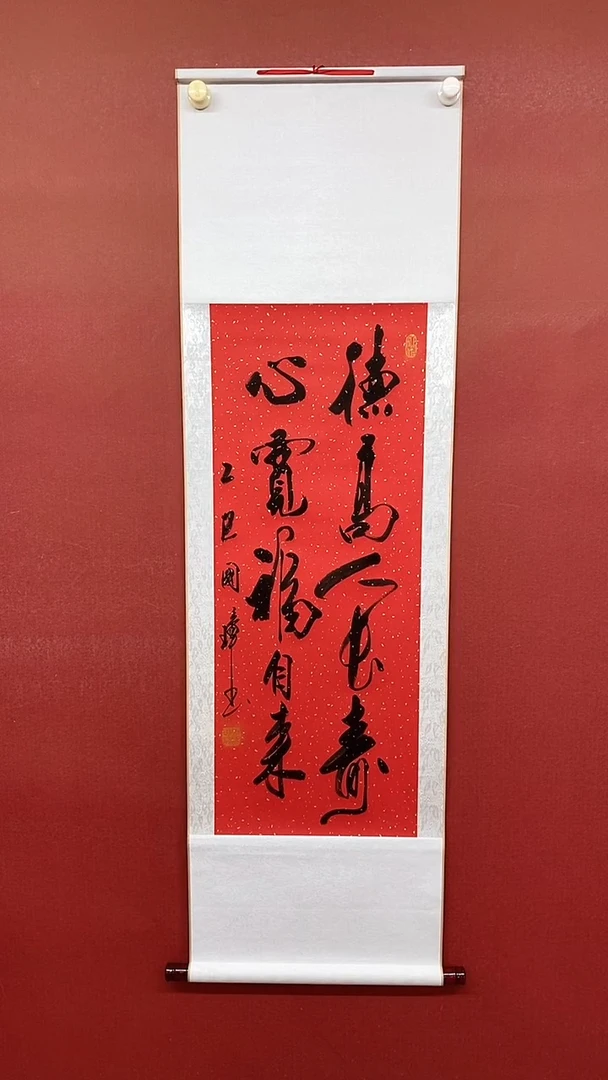 德高人长壽
心寬福自来
乙巳國書